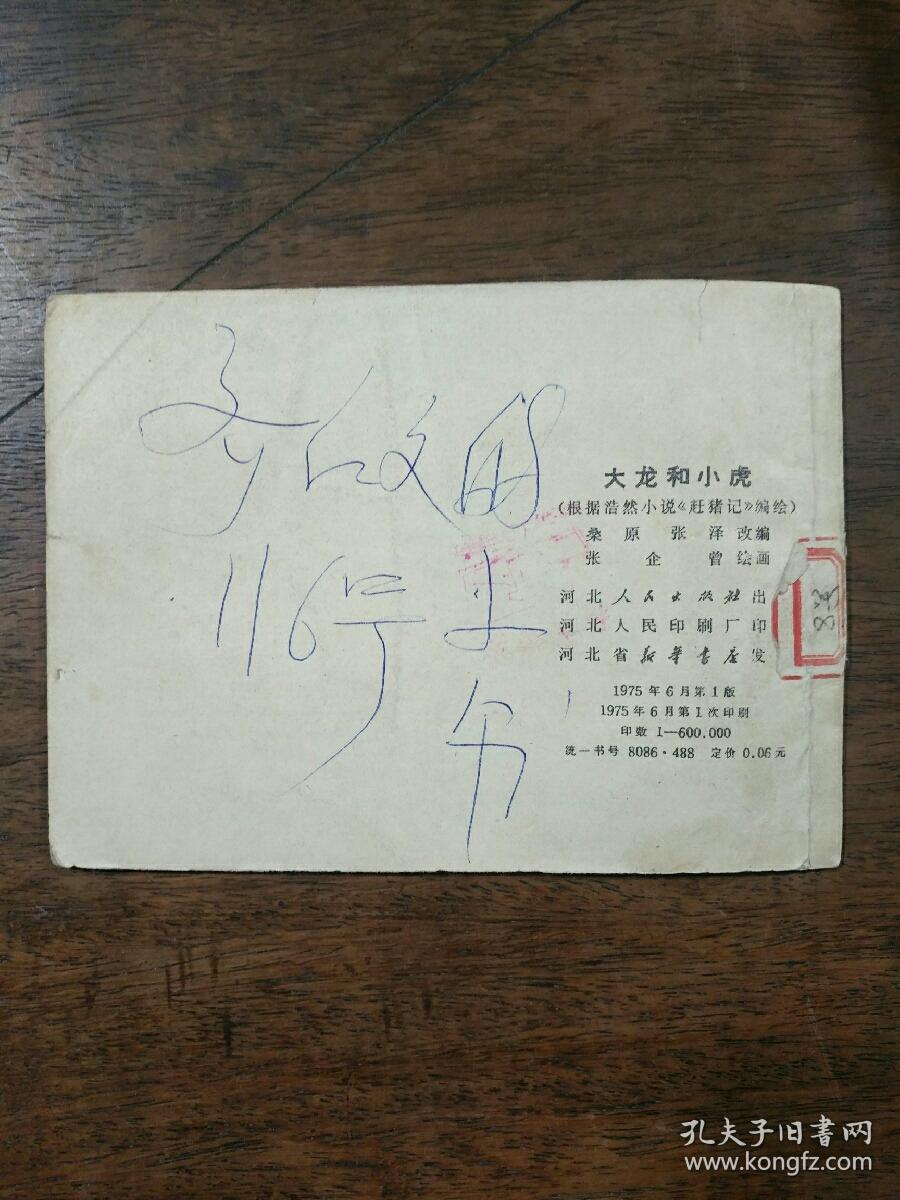 116号
大龙和小虎
（根据浩然小说《赶猪记》编绘）
桑原 张泽改编
张企曾绘画
河北人民出版社出
河北人民印刷厂印
河北省新华书店发
1975年6月第1版
1975年6月第1次印刷
印数 1—600,000
统一书号 8086·488 定价 0.06元
孔夫子旧書网
www.kongfz.com